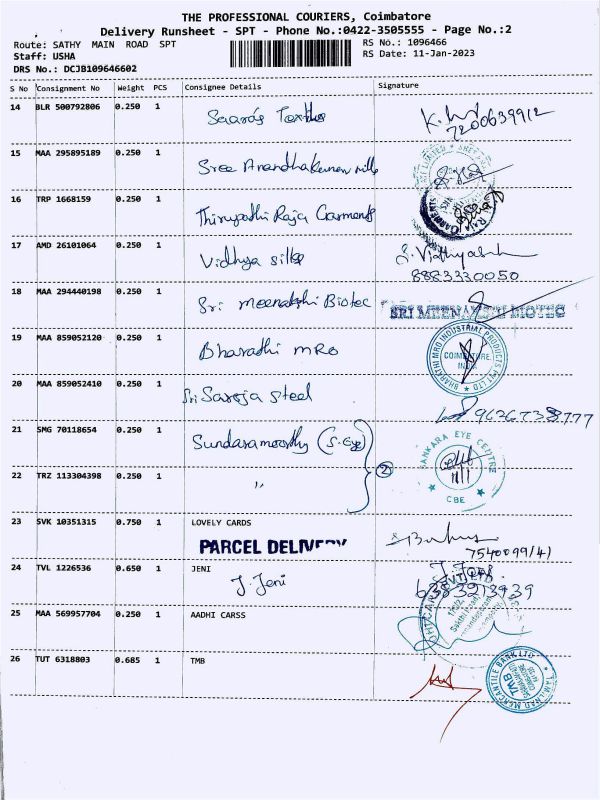 THE PROFESSIONAL COURIERS, Coimbatore
Delivery Runsheet - SPT - Phone No.:0422-3505555 - Page No.:2
Route: SATHY MAIN ROAD SPT RS No.: 1096466
Staff: USHA RS Date: 11-Jan-2023
DRS No.: DCJB109646602
S No Consignment No Weight PCS Consignee Details Signature
14 BLR 500792806 0.250 1
7200639912
15 MAA 295895189 0.250 1 Sree Anandhakumar mills
16 TRP 1668159 0.250 1 Thirupathi Raja Garments
17 AMD 26101064 0.250 1 Vidhya silks
8883330050
18 MAA 294440198 0.250 1 Sri meenakshi Biotec SRI MEENAKSHI BIOTEC
19 MAA 859052120 0.250 1 Bharathi MRO BHARATHI MRO INDUSTRIAL PRODUCTS PVT LTD COIMBATORE
20 MAA 859052410 0.250 1 Sri Saroja Steel
21 SMG 70118654 0.250 1 Sundaramoorthy (S. Eye) SANKARA EYE CENTRE
22 TRZ 113304398 0.250 1 " 2 11/1 CBE
23 SVK 10351315 0.750 1 LOVELY CARDS
PARCEL DELIVERY
24 TVL 1226536 0.650 1 JENI
J. Jeni
25 MAA 569957704 0.250 1 AADHI CARSS
26 TUT 6318803 0.685 1 TMB TAMILNAD MERCANTILE BANK LTD TMB